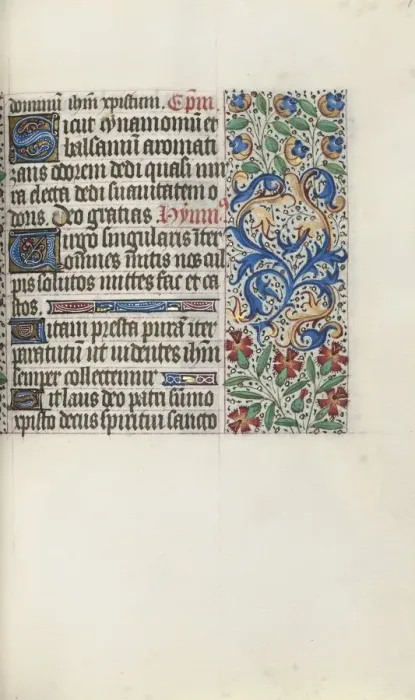 dominū ihm xpistiem. Epm
Sicut cynamomū et
balsamū aromati
zans odorem dedi quasi mir
ra electa dedi suavitatem o
doris. Deo gratias Hymn9
Virgo singularis inter
omnes mitis nos cul
pis solutos mittes fac et ca
stos.
Vitam presta purā iter
para tutū ut videntes ihm
semper colletemur
Sit laus deo patri sūmo
xpisto decus spiritui sancto